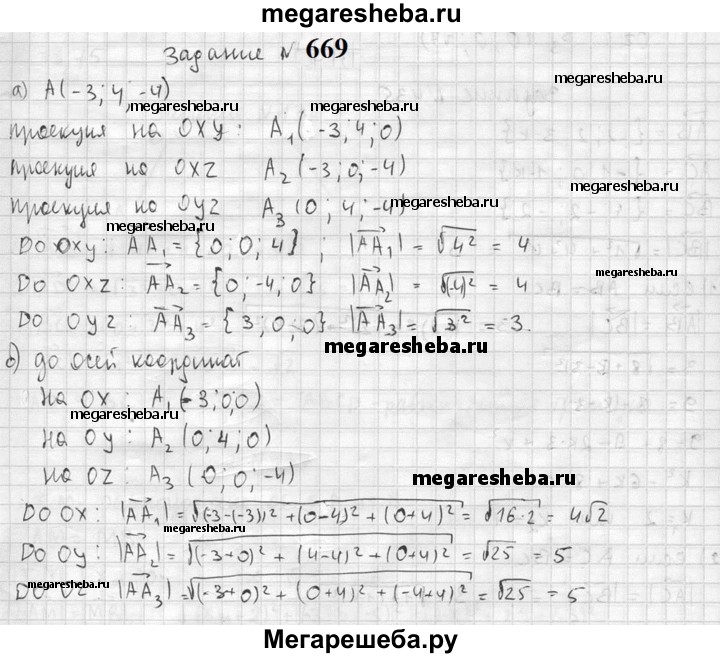 megaresheba.ru
Задание № 669
а) A(-3; 4; -4)
megaresheba.ru
megaresheba.ru
проекция на OXY: A₁(-3; 4; 0)
проекция на OXZ A₂(-3; 0; -4)
megaresheba.ru
проекция на OYZ A₃(0; 4; -4)
megaresheba.ru
megaresheba.ru
До OXY: AA₁ = {0; 0; 4}; |AA₁| = √4² = 4
megaresheba.ru
До OXZ: AA₂ = {0; -4; 0} |AA₂| = √(-4)² = 4
До OYZ: AA₃ = {3; 0; 0} |AA₃| = √3² = 3.
megaresheba.ru
б) до осей координат
на OX: A₁(-3; 0; 0)
megaresheba.ru
на OY: A₂(0; 4; 0)
на OZ: A₃(0; 0; -4)
megaresheba.ru
До OX: |AA₁| = √(-3-(-3))² + (0-4)² + (0+4)² = √16·2 = 4√2
megaresheba.ru
До OY: |AA₂| = √(-3+0)² + (4-4)² + (0+4)² = √25 = 5
megaresheba.ru
До OZ: |AA₃| = √(-3+0)² + (0+4)² + (-4+4)² = √25 = 5
megaresheba.ru
Мегарешеба.ру